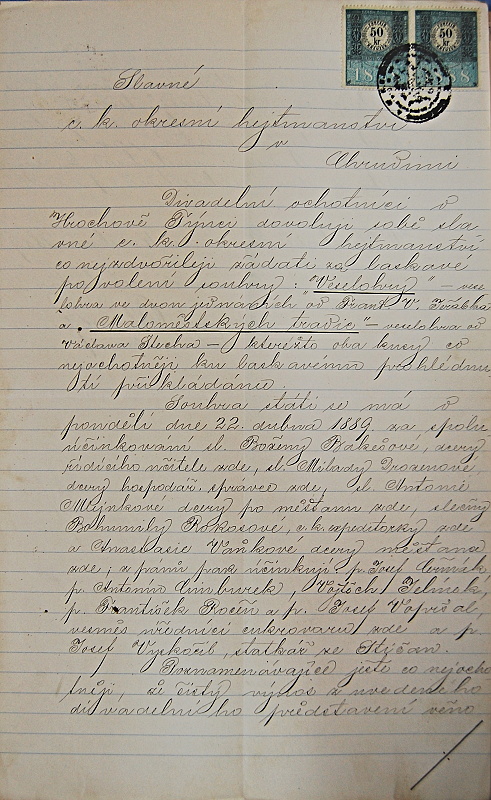 50 kr 50 kr
18 8 8
Slavné
c. k. okresní hejtmanství
v
Chrudimi
Divadelní ochotníci v
Hrochově Týnci dovolují sobě sla-
vné c. k. okresní hejtmanství
co nejzdvořileji žádati za laskavé
povolení souhry: "Veselohry" - vese-
lohra ve dvou jednáních od Frant. V. Jeřábka
a "Maloměstských tradic - veselohra od
Václava Štecha - kterýžto oba kusy co
nejochotněji ku laskavému prohlédnu-
tí přikládánu.
Souhra státi se má v
pondělí dne 22. dubna 1889 za spolu
účinkování sl. Boženy Bakešové, dcery
řídícího učitele zde, sl. Milady Drozenové,
dcery hospodář. správce zde, sl. Antonie
Mlýnkové dcery po měšťanu zde, slečny
Bohumily Rokosové, c. k. expeditorky zde
a Anastasie Vaňkové dcery měšťana
zde; z pánů pak účinkují p. Josef
p. Antonín Cimburek, Vojtěch Jelínek,
p. František Rocín a p. Josef
vesměs úředníci cukrovaru zde a p.
Josef Vyskočil, statkář ze Stíčan.
Poznamenávajíce ještě co nejocho-
tněji, že čistý výnos z uvedeného
divadelního představení věno